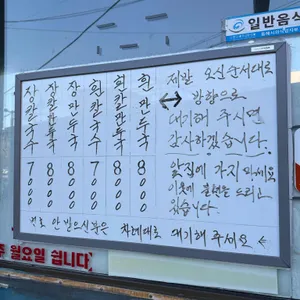 일반음식
장칼국수 7000
장칼만두국 8000
장만두국 8000
흰칼국수 7000
흰칼만두국 8000
흰만두국 8000
제발 오신순서대로
↔ 방향으로
대기해 주시면
감사하겠습니다.
앞집에 가지마세요
이웃에 불편을 드리고
있습니다.
번호 안받으신분은 차례대로 대기해 주세요 ←
주 월요일 쉽니다